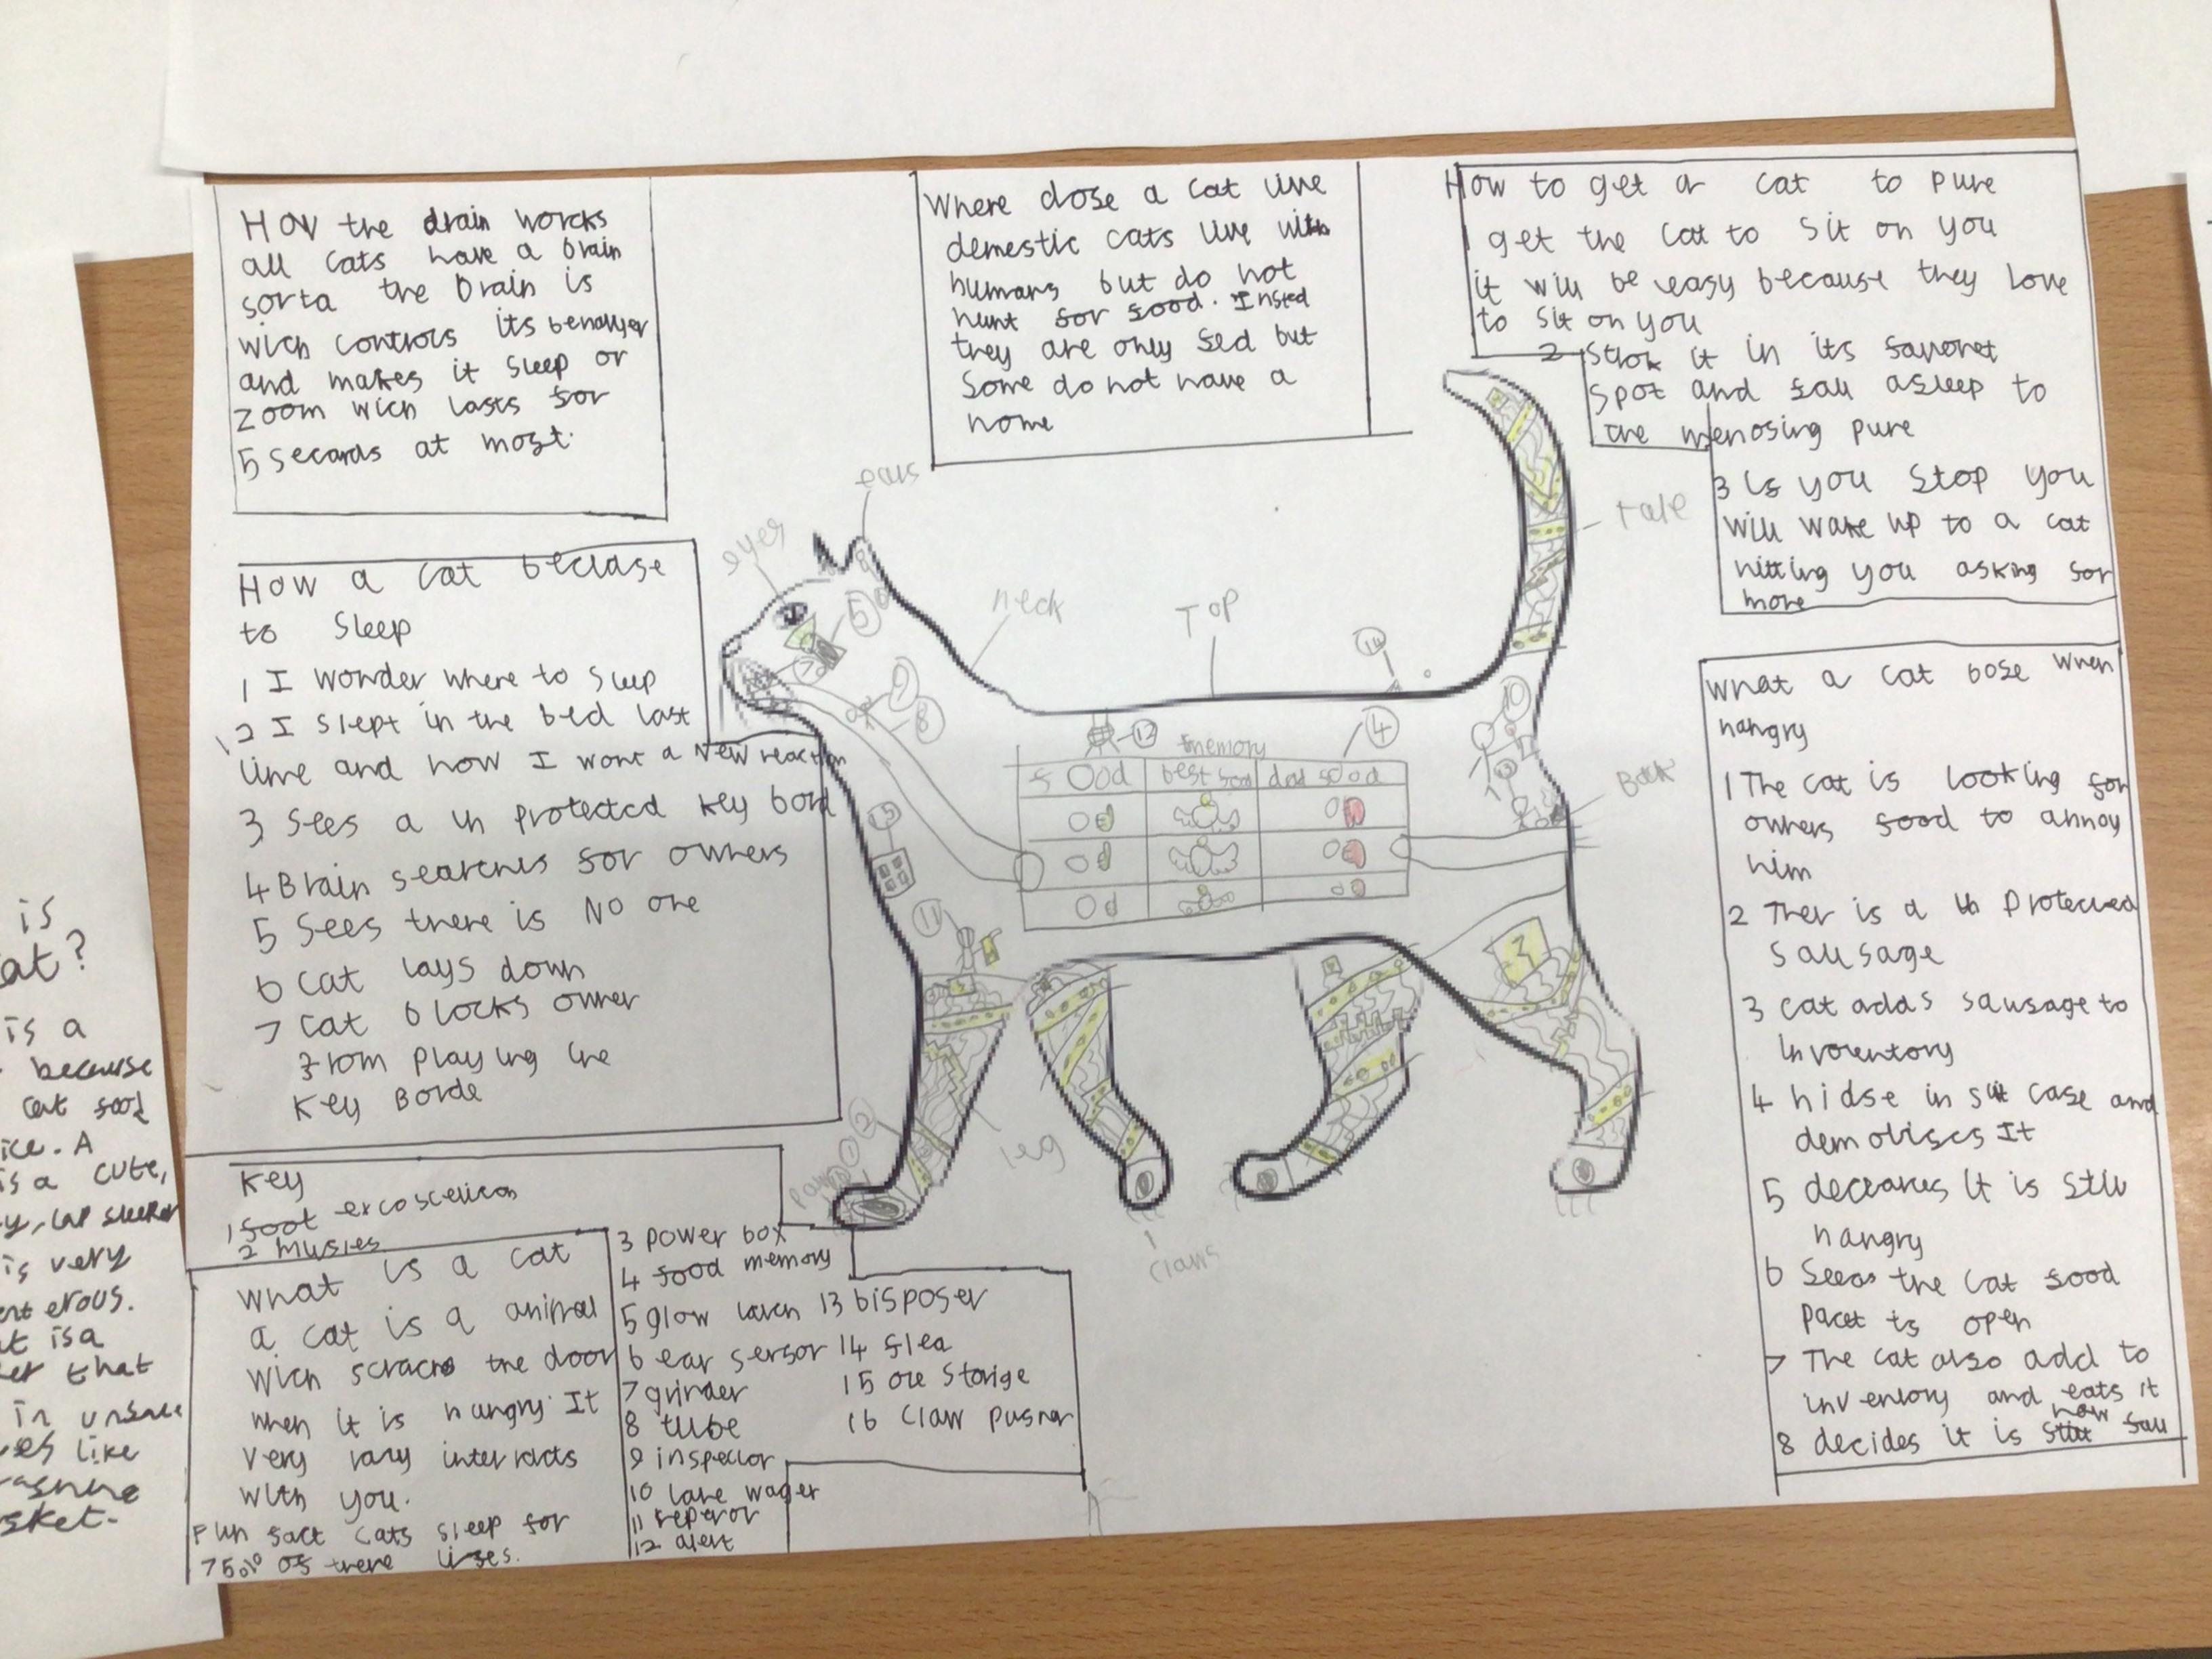 How the brain worcks
all cats have a brain
sorta the brain is
wich controls its behavyer
and makes it sleep or
zoom wich lasts for
5 secands at most.
Where dose a cat live
demestic cats live with
humans but do not
hunt for food. Insted
they are only fed but
some do not have a
home
How to get a cat to pure
get the cat to sit on you
it will be easy because they love
to sit on you
2 strok it in its favoret
spot and fall asleep to
the menosing pure
3 if you stop you
will wake up to a cat
hitting you asking for
more
How a cat beclase
to sleep
1 I wonder where to sleep
2 I slept in the bed last
time and now I wont a new reaction
3 sees a un protected key bord
4 Brain searches for owners
5 sees there is No one
6 cat lays down
7 cat blocks owner
from playing the
key Borde
What a cat dose when
hangry
1 The cat is looking for
owners food to annoy
him
2 Ther is a un protected
sausage
3 cat adds sausage to
invorentory
4 hidse in suit case and
demolises It
5 deceares it is still
hangry
6 Seeas the cat food
pacet is open
7 The cat also add to
inventory and eats it
8 decides it is now full
Key
1 foot
2 musles
3 power box
4 food memory
5 glow
6 ear sensor
7 grinder
8 tube
9 inspector
10
11 reperor
12 alert
13 disposer
14 flea
15 ore storige
16 claw pusher
What is a cat
a cat is a animal
wich scrachs the door
when it is hangry. It
very rary interacts
with you.
Fun fact cats sleep for
75% of there lifes.
ears
eyes
neck
Top
tale
Back
leg
paw
claws
memory
food
best food
dad food
1
2
3
4
5
6
7
8
10
11
12
13
14
15
is
at?
is a
because
cat food
ice. A
is a cute,
y, lap sleeper
is very
ent erous.
t is a
er that
in unsual
ces like
ashine
sket.